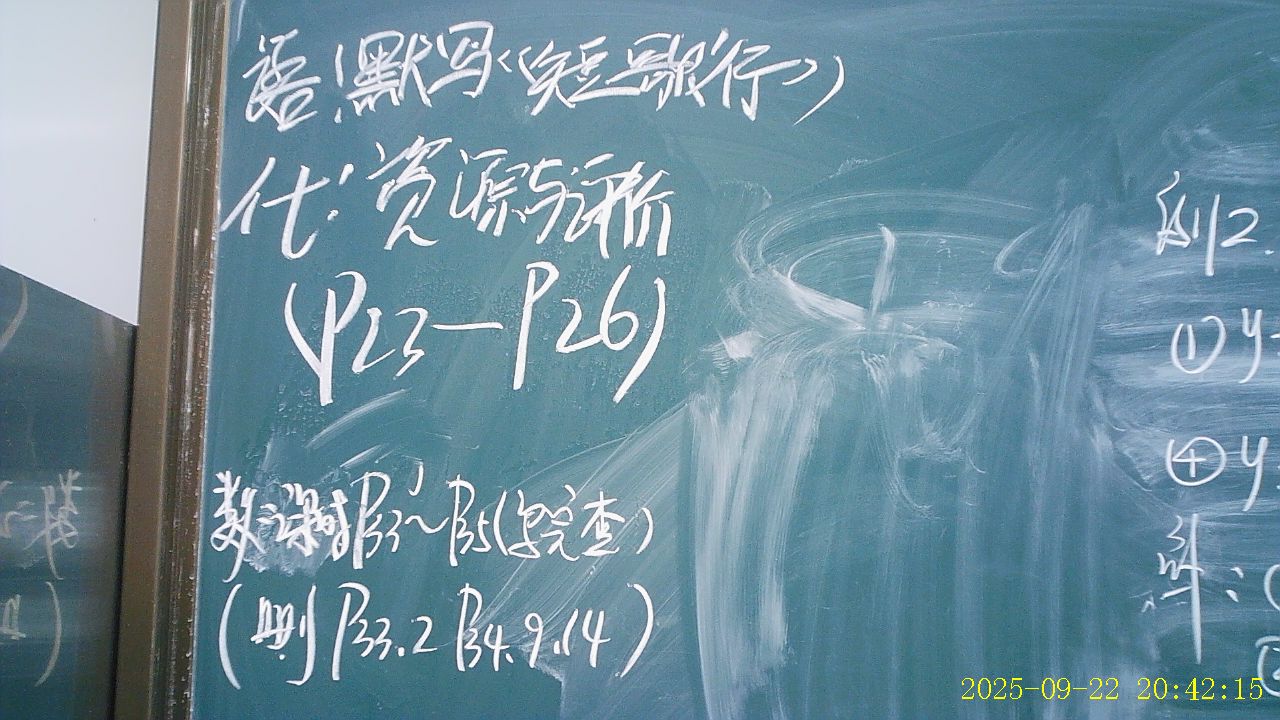 语:默写《短歌行》
化:资源与评价
(P23—P26)
数:课时P33~P35(写完查)
(删P33.2 P34.9.14)
例12.
① y
④ y
解:(
2025-09-22 20:42:15